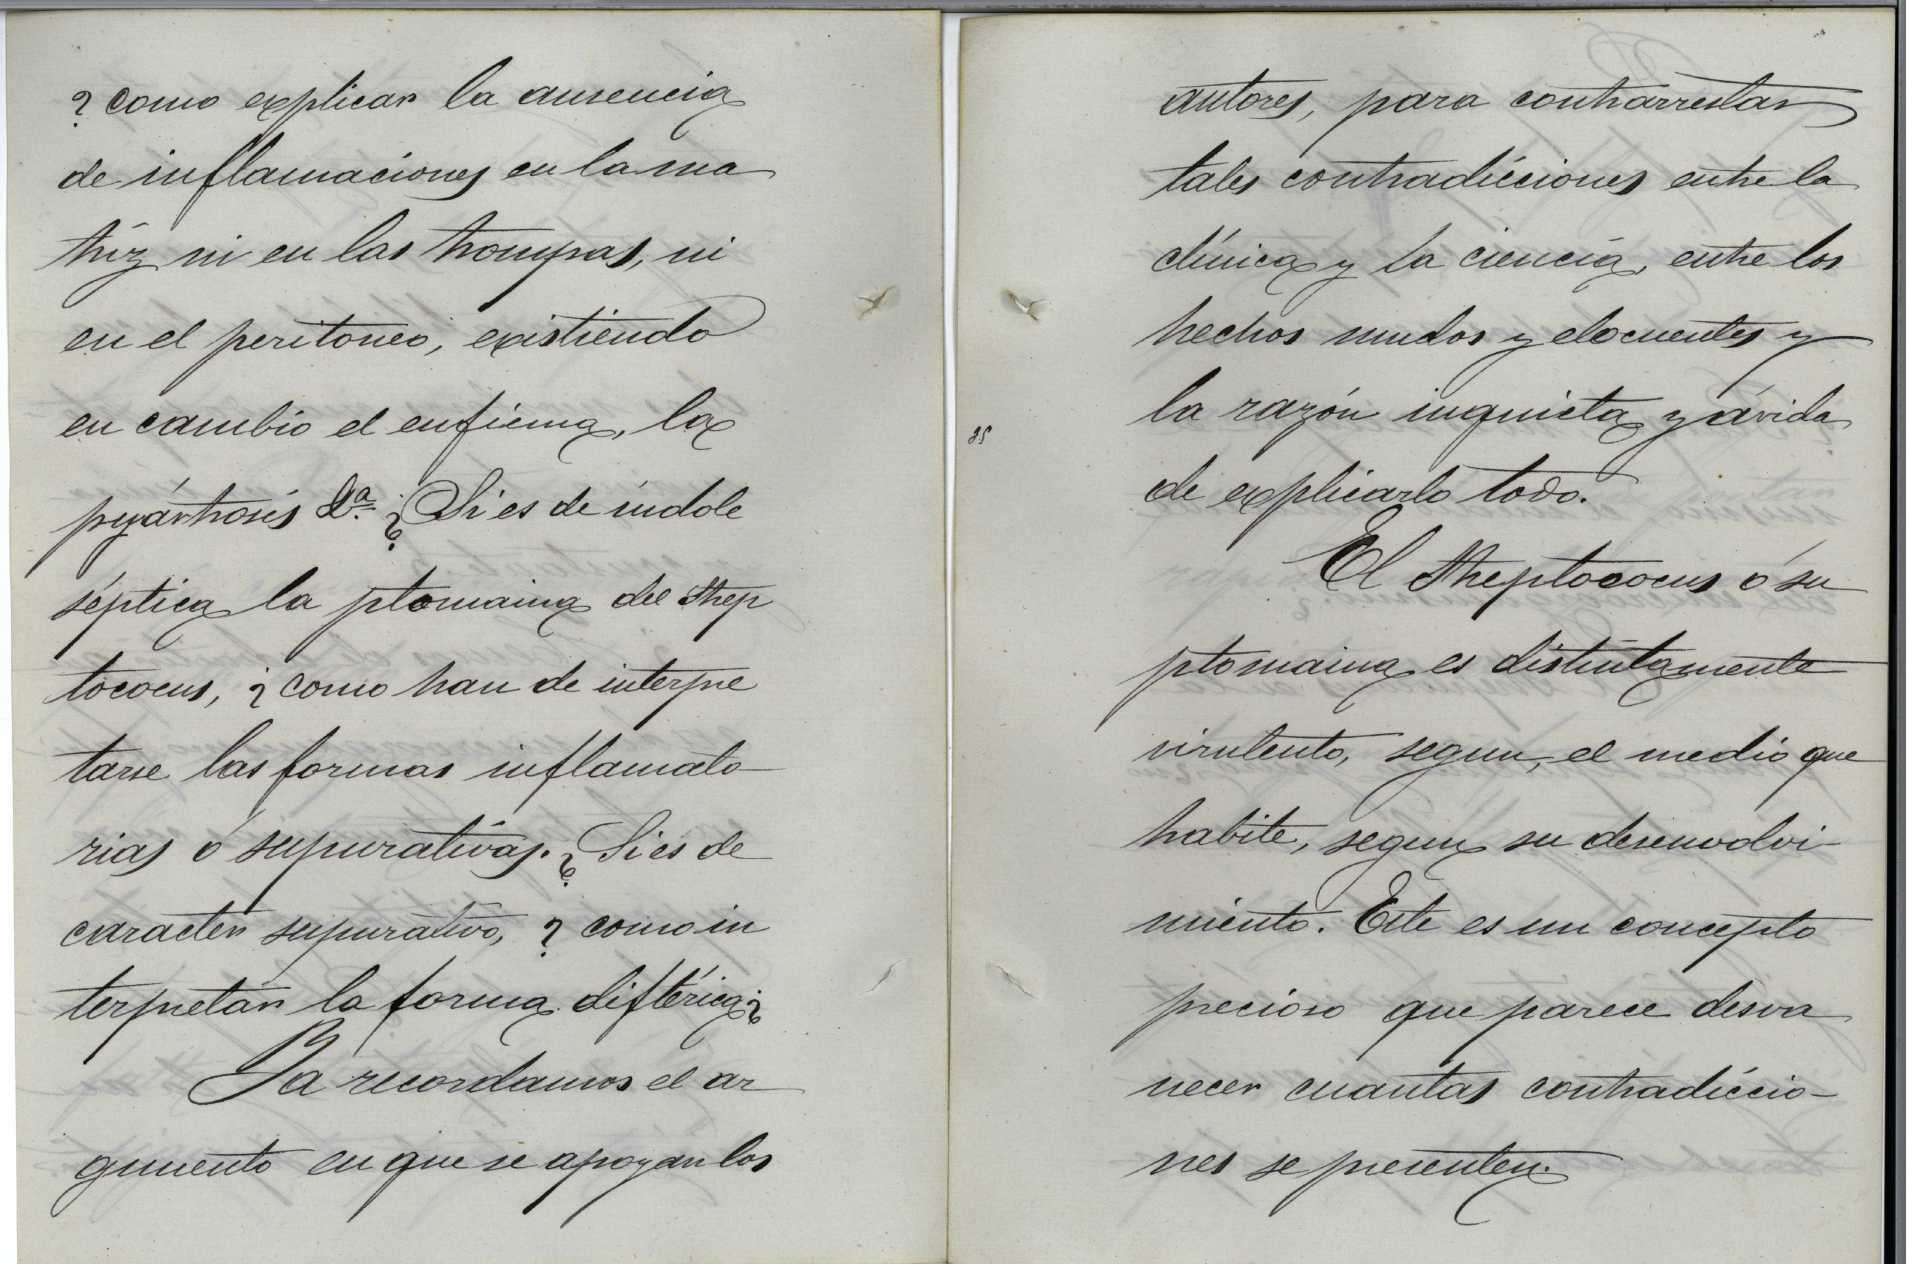 ¿como explicar la ausencia
de inflamaciones en la ma
tríz ni en las trompas, ni
en el peritoneo, existiendo
en cambio el enfiema, la
pyártrosis &ª.? Si es de indole
séptica la ptomaina del strep
tococus, ¿como han de interpre
tarse las formas inflamato-
rias ó supurativas.? Si es de
caracter supurativo, ¿como in
terpretar la forma diftérica?
Ya recordamos el ar
gumento en que se apoyan los
autores, para contrarrestar
tales contradicciones entre la
clínica y la ciencia, entre los
hechos mudos y elocuentes y
la razón inquieta y ávida
de explicarlo todo.
35
El streptococus ó su
ptomaina es distintamente
virulento, segun, el medio que
habite, segun su desenvolvi-
miento. Este es un concepto
precioso que parece desva
necer cuantas contradiccio-
nes se presenten.